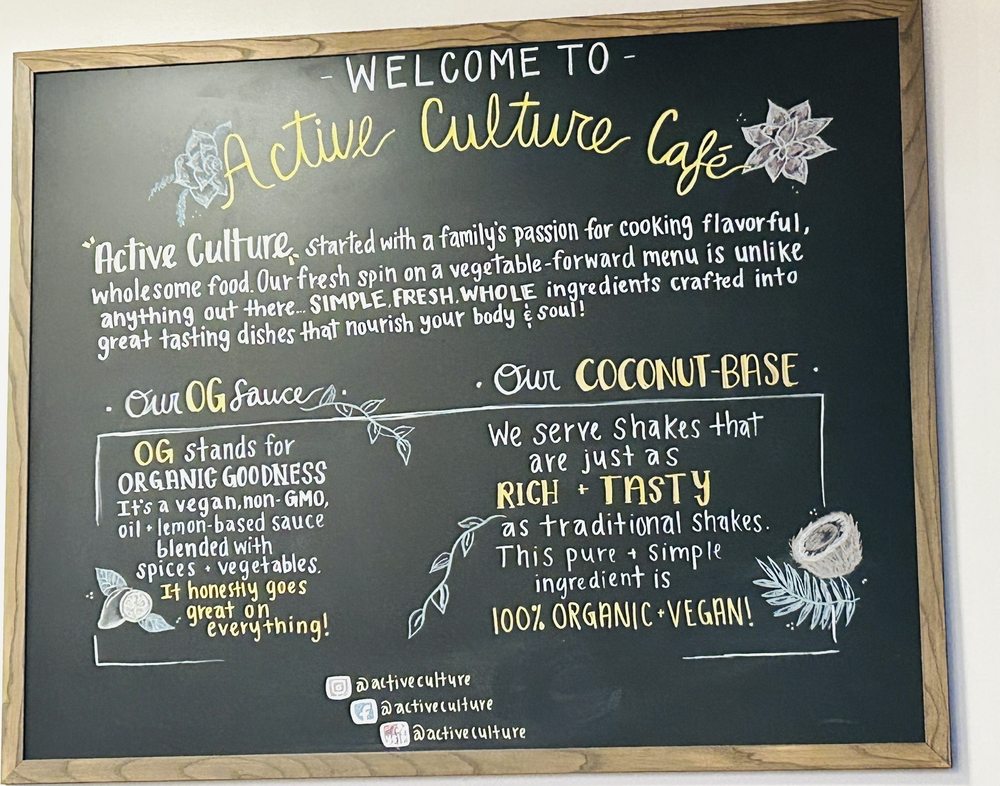 - WELCOME TO -
Active Culture Café
"Active Culture" started with a family's passion for cooking flavorful,
wholesome food. Our fresh spin on a vegetable-forward menu is unlike
anything out there... SIMPLE. FRESH. WHOLE ingredients crafted into
great tasting dishes that nourish your body & soul!
· Our OG Sauce ·
OG stands for
ORGANIC GOODNESS
It's a vegan, non-GMO,
oil + lemon-based sauce
blended with
spices + vegetables.
It honestly goes
great on
everything!
· Our COCONUT-BASE ·
We serve shakes that
are just as
RICH + TASTY
as traditional shakes.
This pure + simple
ingredient is
100% ORGANIC + VEGAN!
@activeculture
@activeculture
@activeculture